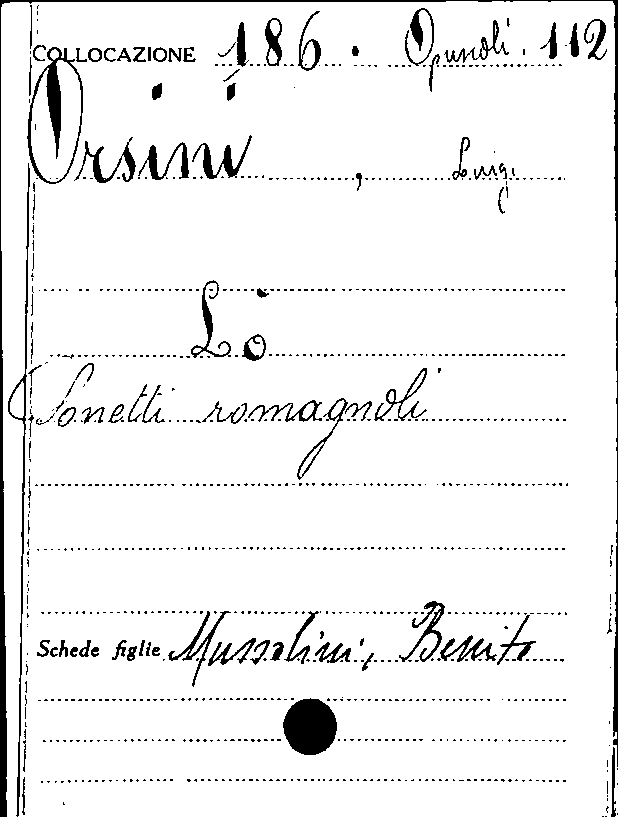 COLLOCAZIONE 186. Opuscoli. 112
Orsini, Luigi
Lo
Sonetti romagnoli
Schede figlie Mussolini, Benito